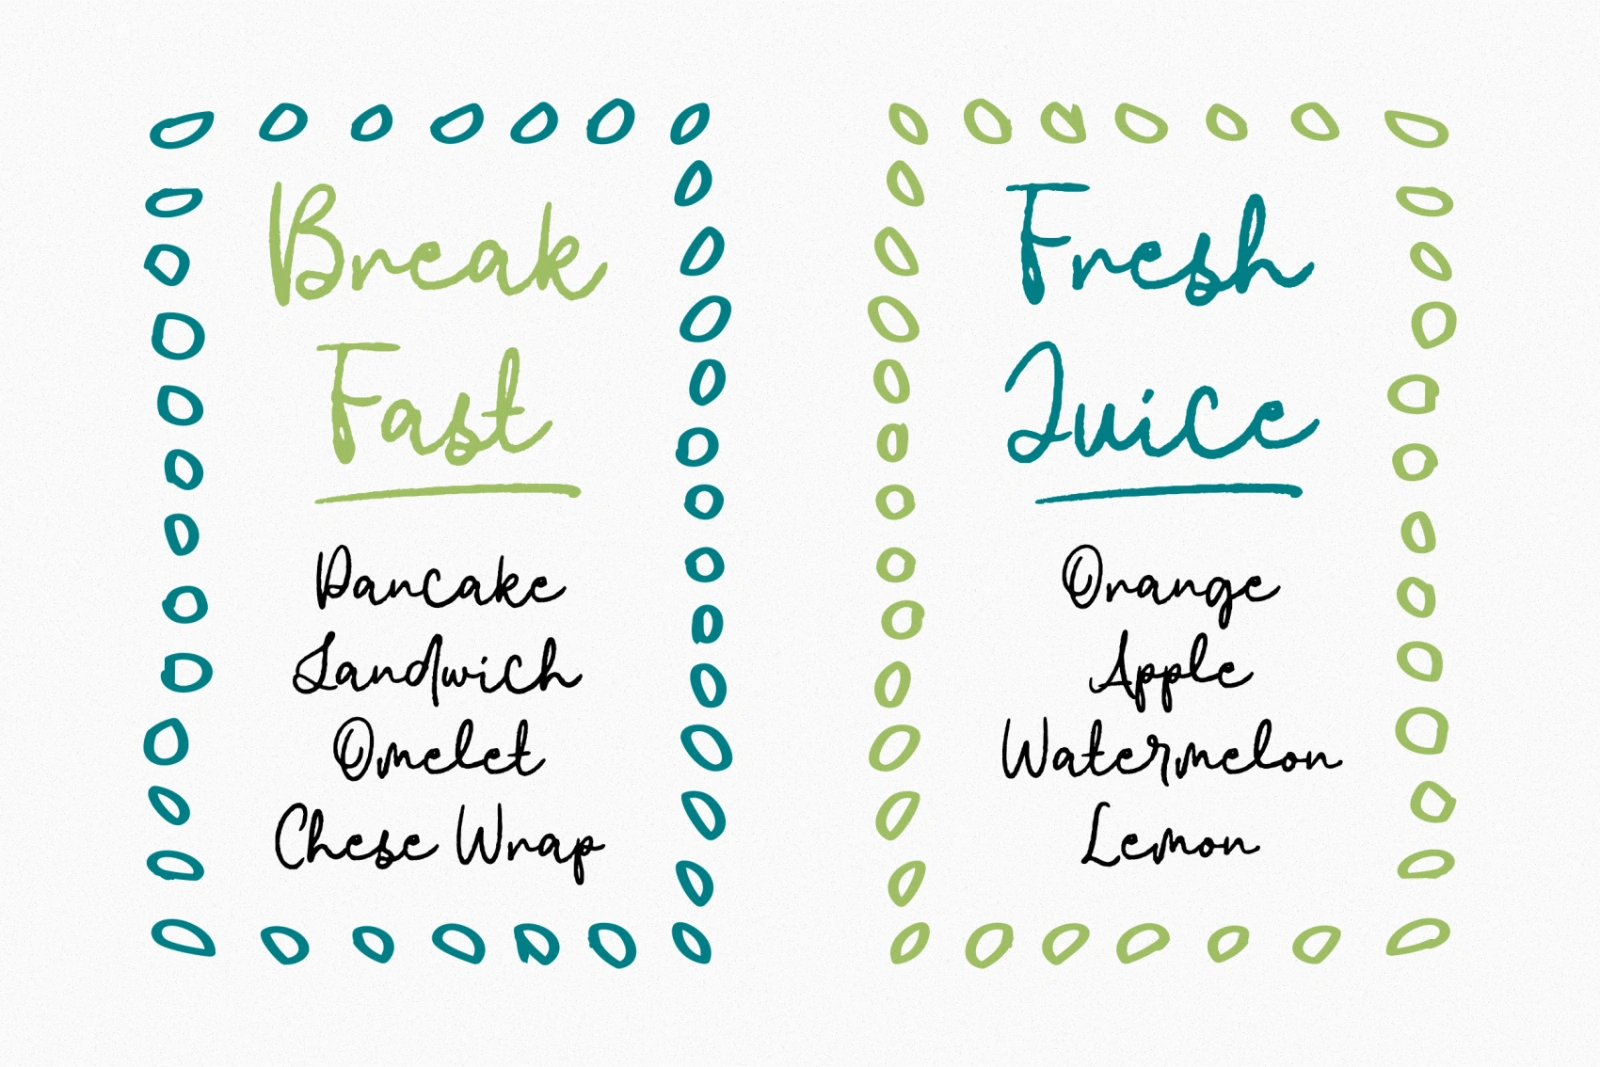 Break
Fast
Pancake
Sandwich
Omelet
Chese Wrap
Fresh
Juice
Orange
Apple
Watermelon
Lemon